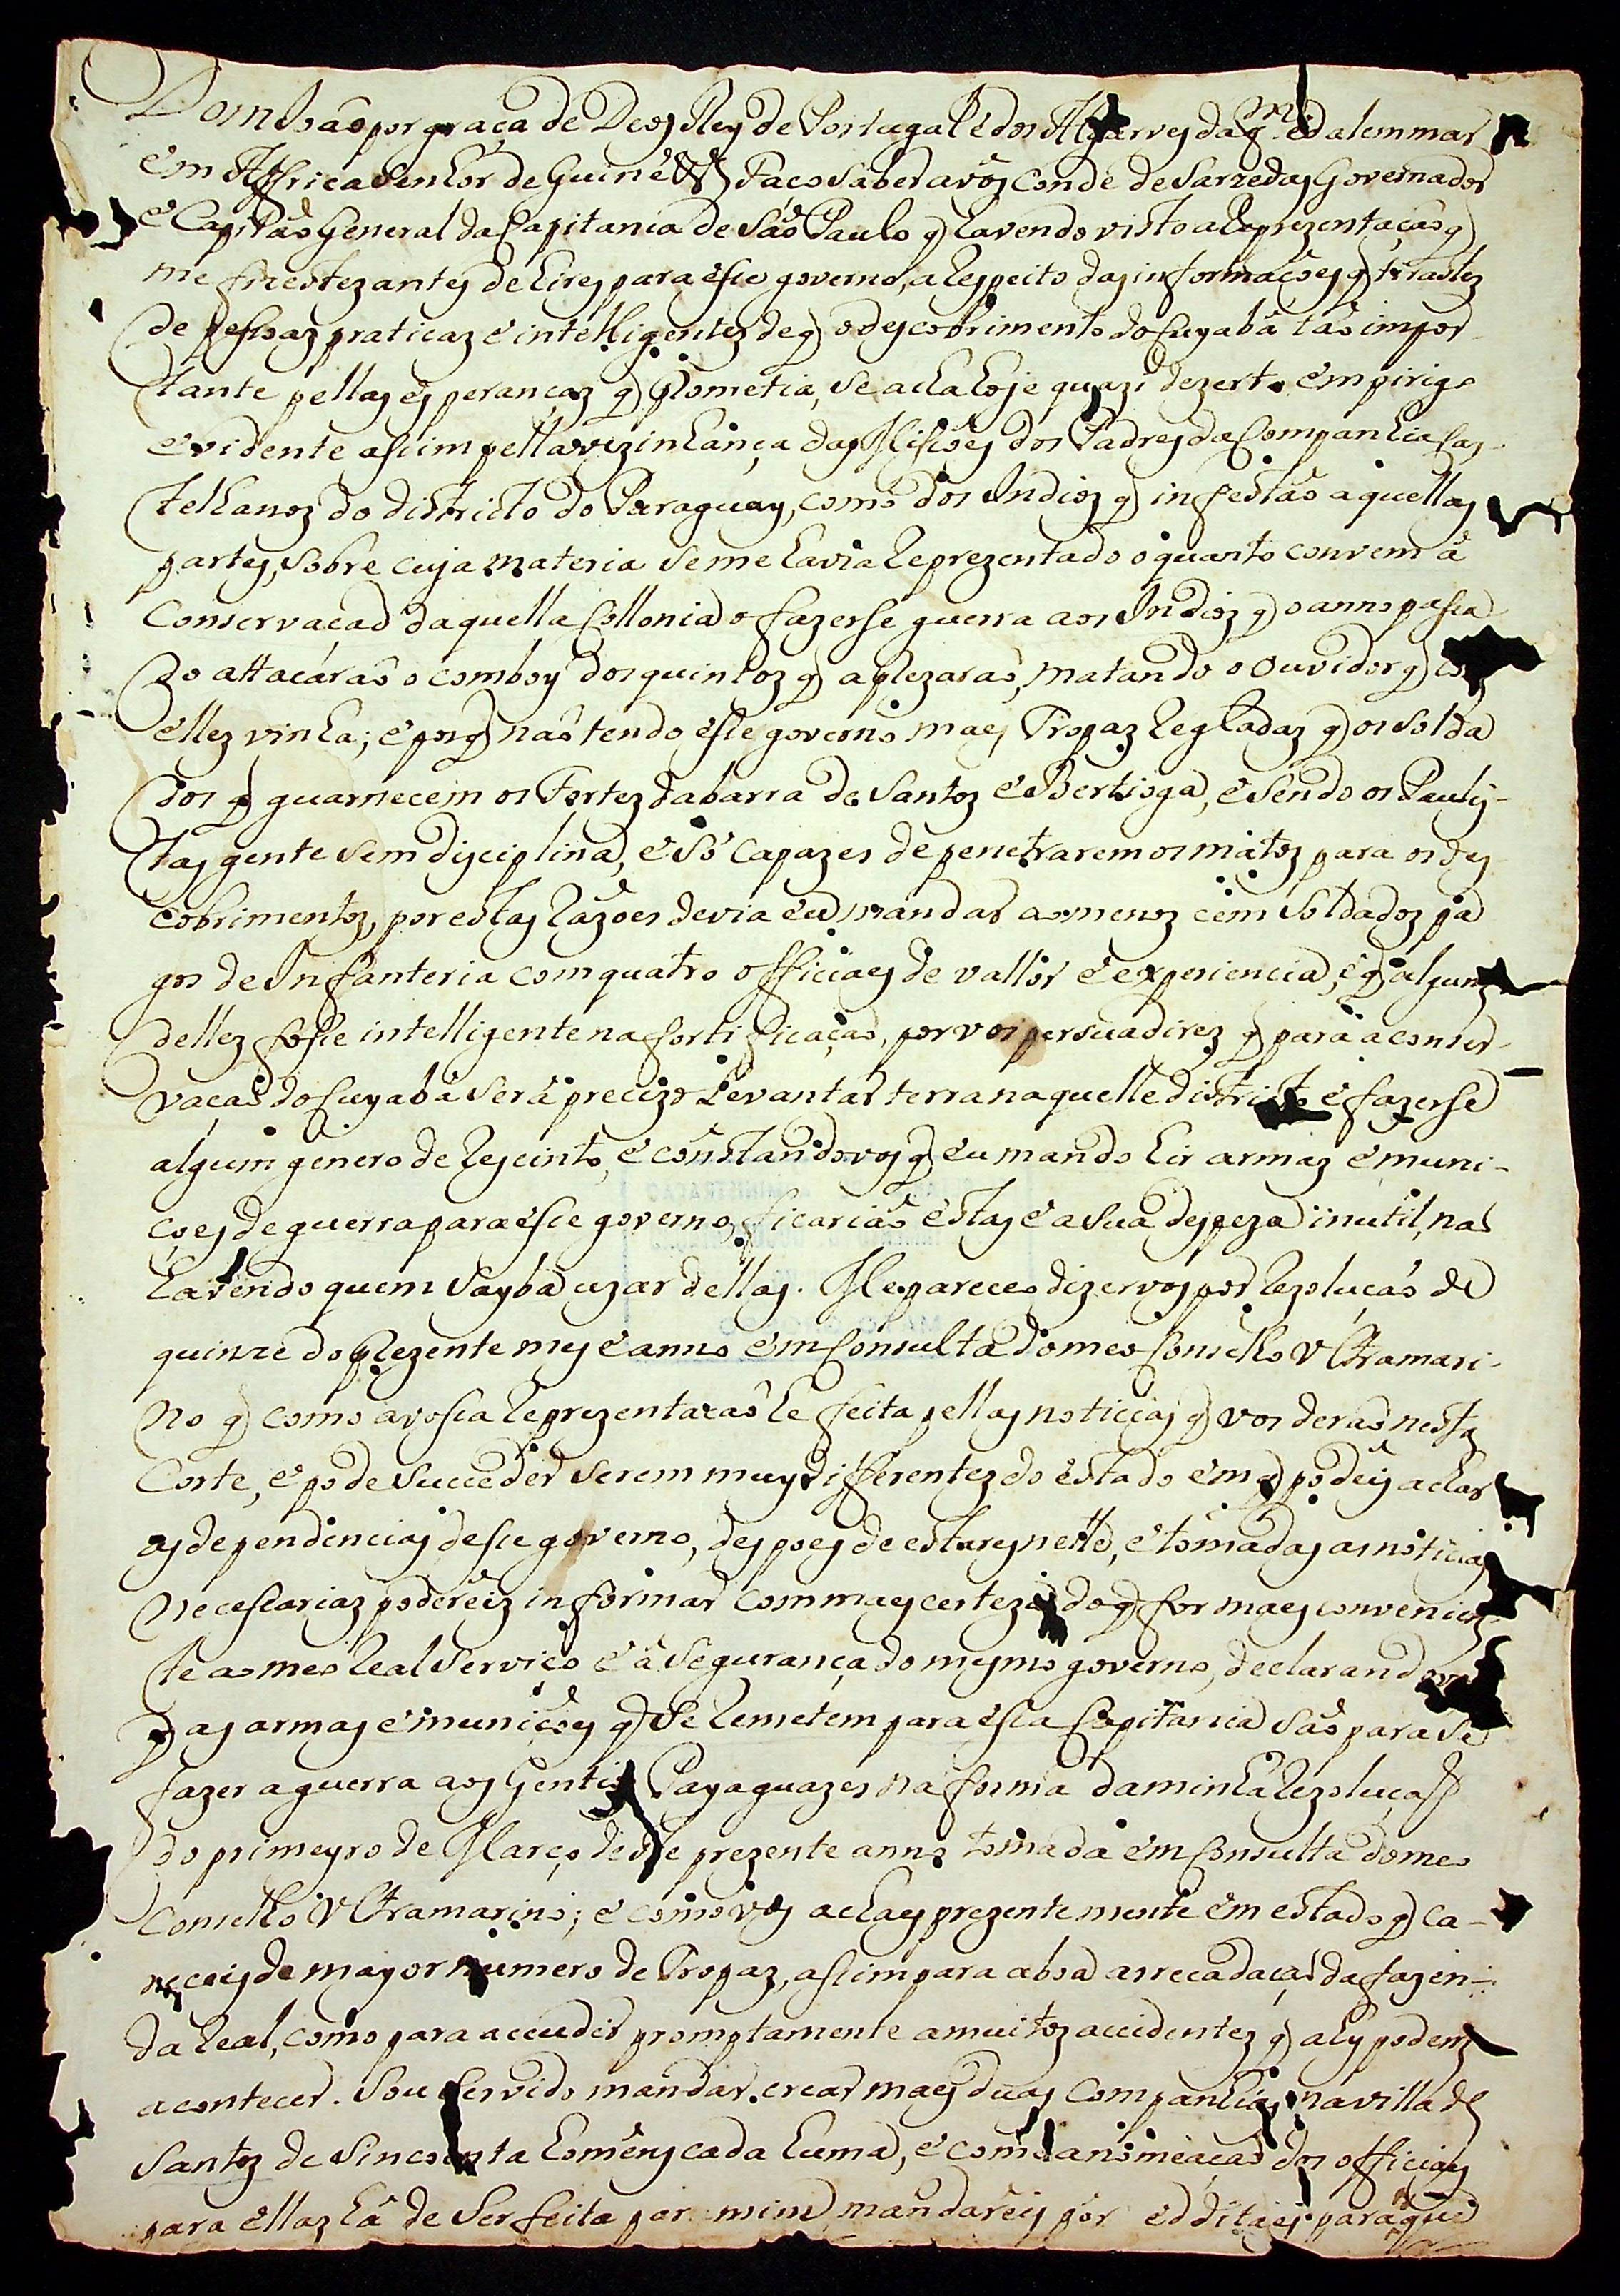 Dom Joaõ por graça de Deos Rey de Portugal e dos Algarves daq.m e dalem mar
em Affrica Senhor de Guiné &ª Faço saber a vós Conde de Sarzedas Governador
e Capitaõ General da Capitania de Saõ Paulo q havendo visto a Reprezentaçaõ q
me fizestez antes de hires para esse governo, a Respeito das informaçoẽs q tirastez
de pessoaz praticaz e intelligentez de q o descobrimento do Cuyabá taõ impor
tante pellas esperançaz q prometia, se acha hoje quazi dezerto e em pirigo
evidente assim pella vezinhança das Missoẽs dos Padres da Companhia Cas-
telhanoz do districto do Paraguay, como dos Indioz q infestaõ aquellas
partes, sobre cuja materia se me havia Reprezentado o quanto convem á
conservaçaõ daquella Collonia o fazersse guerra aos Indioz q o anno passa
do attacáraõ o comboy dos quintoz q aprezaraõ, matando o ouvidor q
ellez vinha; e porq naõ tendo esse governo maes Tropaz Regladaz q os solda
dos q guarnecem os Fortez da barra de Santoz e Bertioga, e sendo os Paulis-
tas gente sem disciplina, e só capazes de penetrarem os matoz para os des
cobrimentoz, por estas Razoẽs devia eu mandar ao menoz cem soldadoz pa
gos de Infanteria com quatro officiaes de vallor e experiencia, e q algum
dellez fosse intelligente na fortificaçaõ, por vos persuadirez q para a conser-
vaçaõ do Cuyabá será precizo Levantar terra naquelle districto e fazersse
algum genero de Rescinto, e constandovos q eu mando hir armaz e muni-
çoẽs de guerra para esse governo, ficariaõ estas e a sua despeza inutil, naõ
havendo quem sayba uzar dellas. Me pareceo dizervos por Rezoluçaõ de
quinze do prezente mes e anno em Consulta do meo Conselho Vltramari-
no q como a vossa Reprezentaçaõ he feita pellas noticias q vos deraõ nesta
Corte, e pode succeder serem muy differentez do estado em q podeis achar
as dependencias desse governo, despoes de estares nelle, e tomadas as noticias
necessariaz podereiz informar com mayor certeza do q for maes convenien
te ao meo Real serviço e á segurança do mesmo governo, declarandovos
q as armas e muniçoẽs q se Remetem para essa Capitania saõ para se
fazer a guerra aos Gentios Payaguazes na forma da minha Rezoluçaõ
do primeyro de Março deste prezente anno tomada em Consulta do meo
Conselho Vltramarino; e como vos achaes prezentemente em estado q ca-
receis de mayor numero de Tropaz, assim para a boa arrecadaçaõ da fazen-
da Real, como para accudir promptamente a muitoz accidentez q ahy podem
acontecer. Sou servido mandar crear maes duas Companhias na villa de
Santoz de sincoenta homẽns cada huma, e como a nomeaçaõ dos officiaes
para ellaz há de ser feita por mim, mandareis pôr edditaes para que